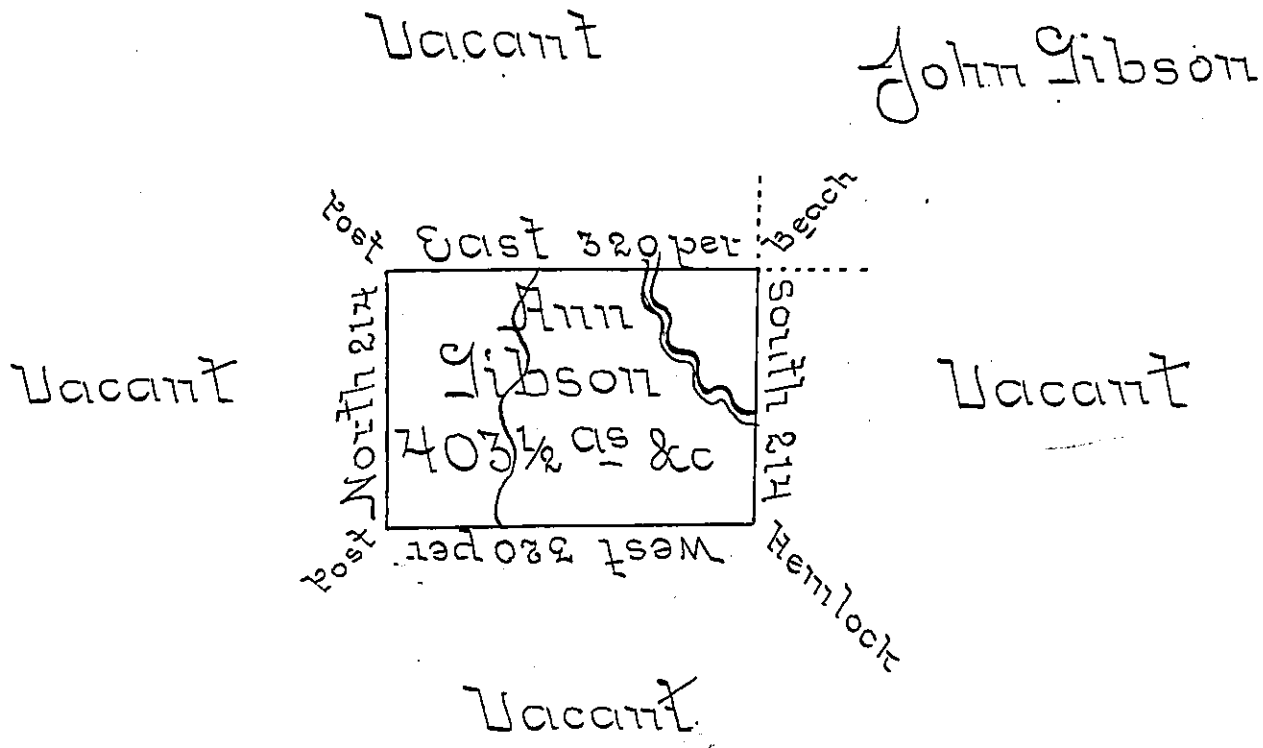 Vacant
John Gibson
Post
East 320 per
Beach
North 214
Ann
Gibson
403 1/2 as &c
South 214
Vacant
Vacant
Post
West 320 per
Hemlock
Vacant